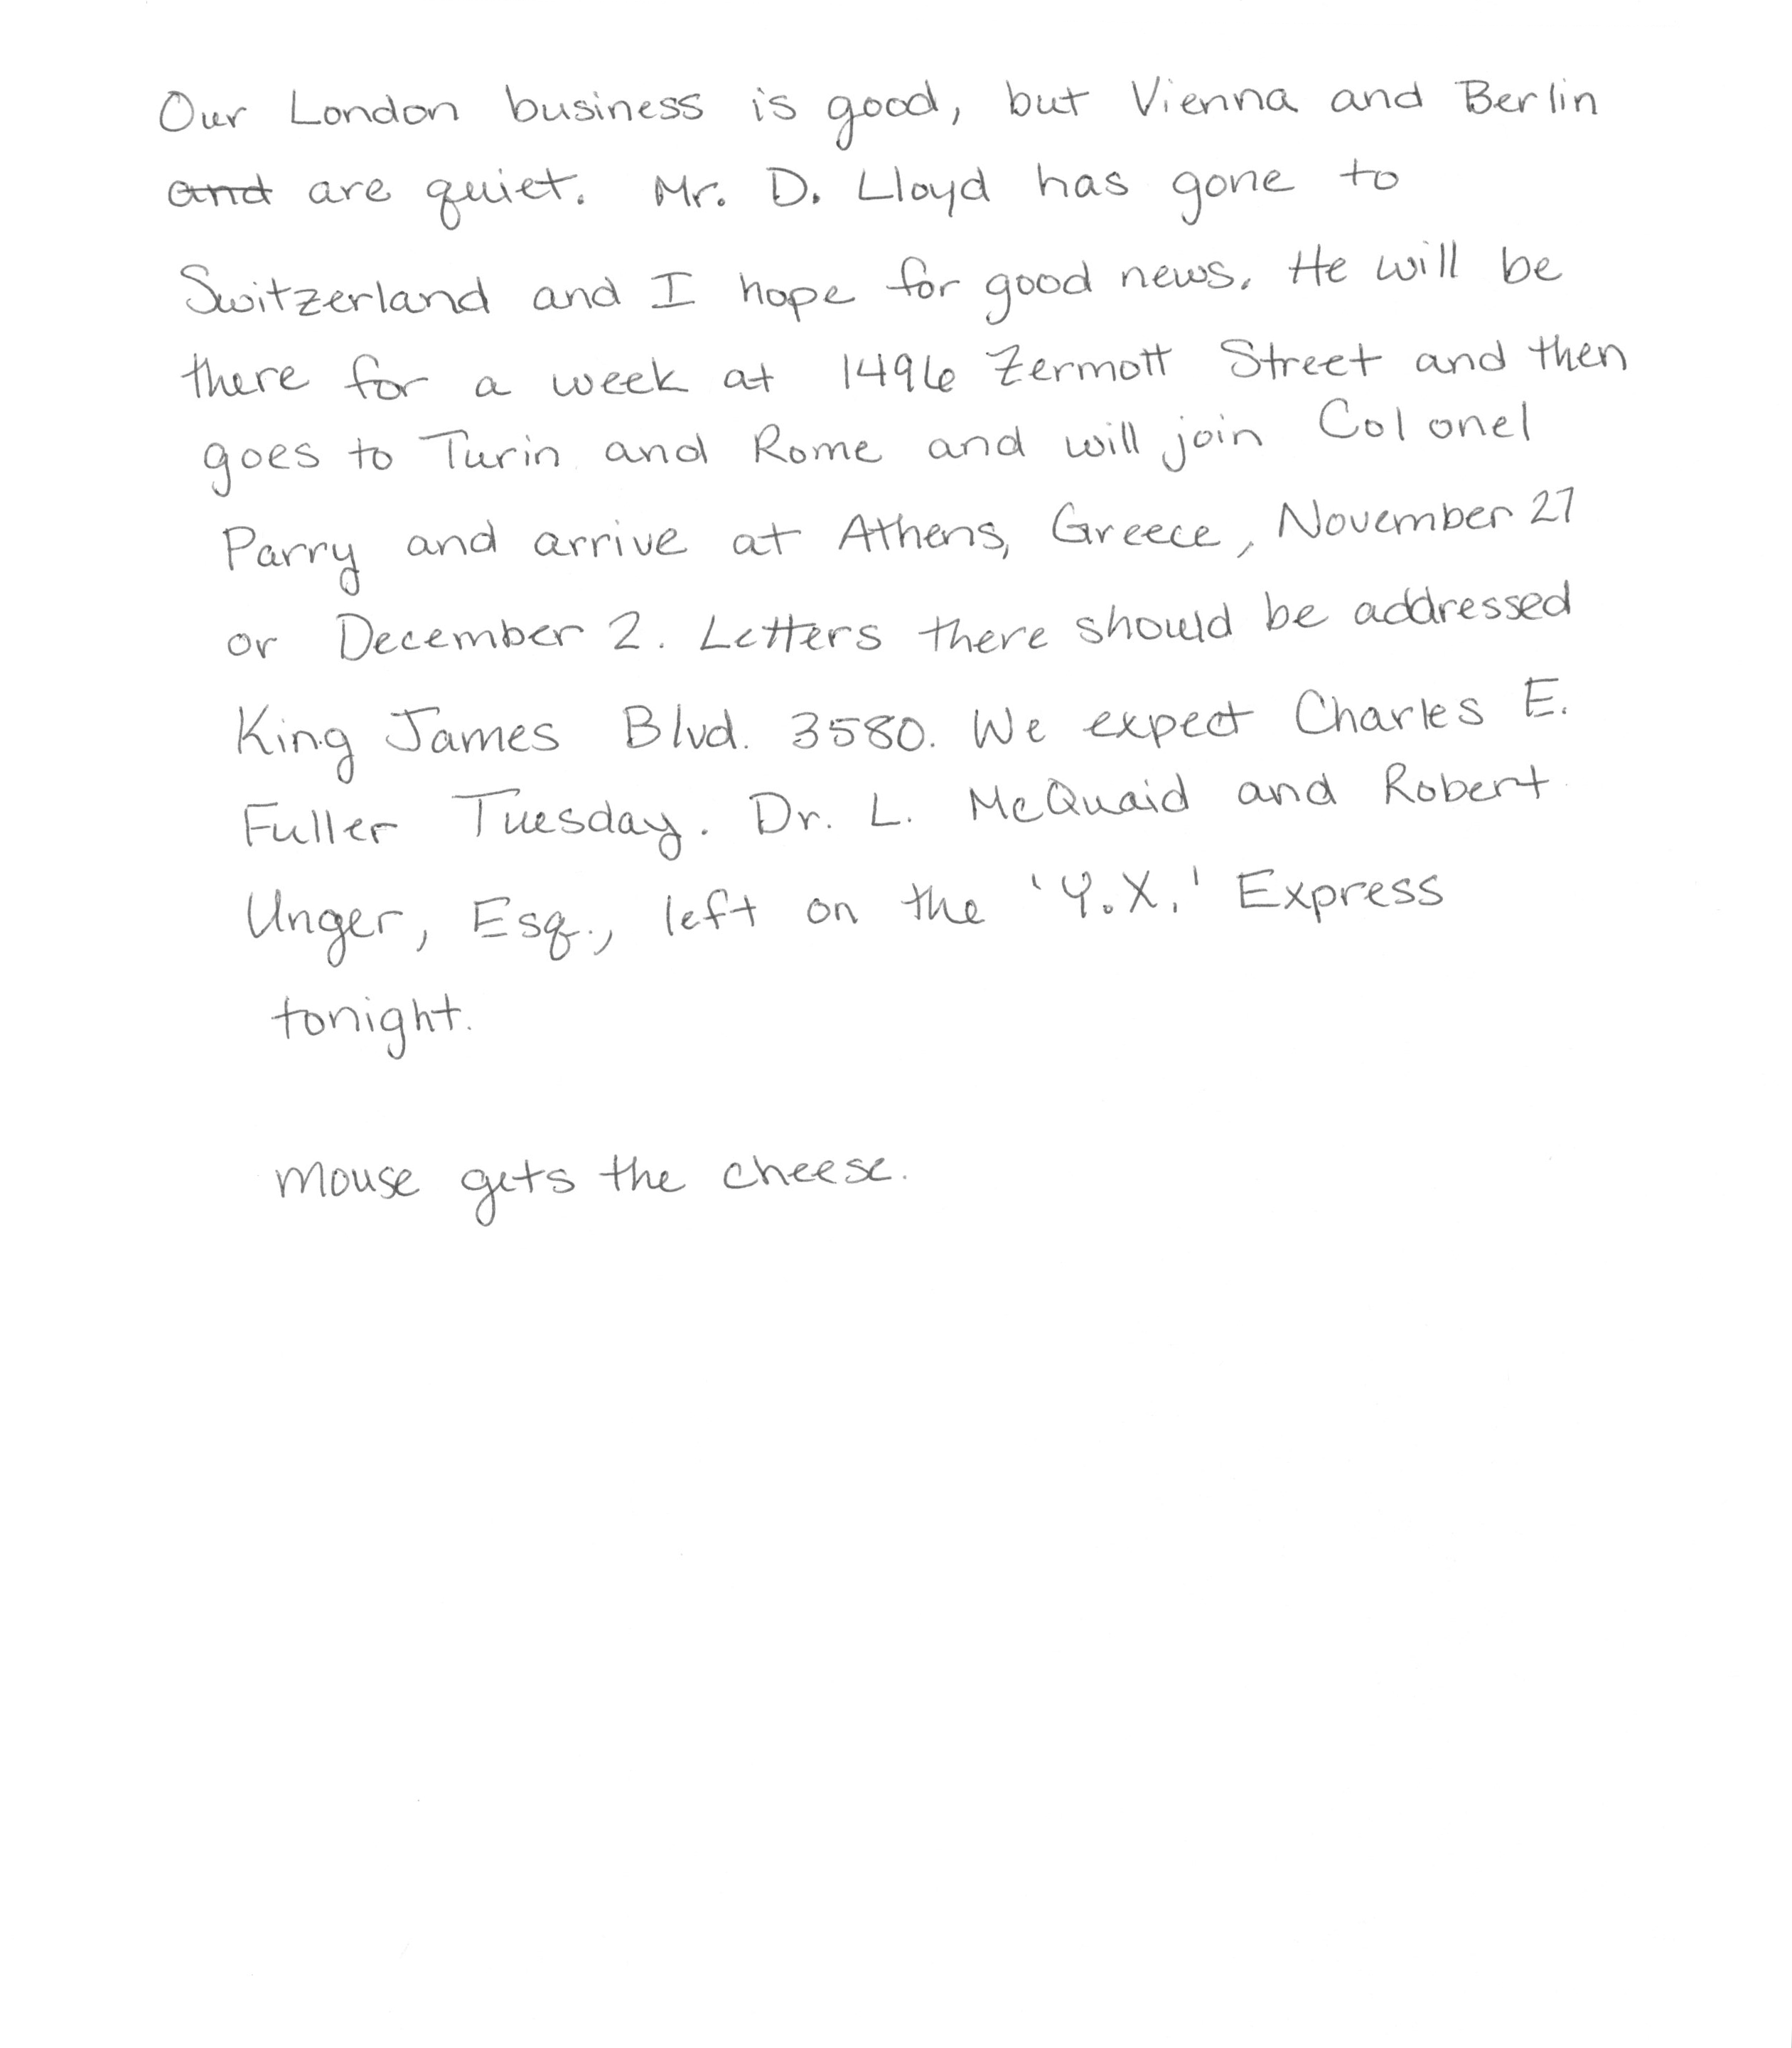 Our London business is good, but Vienna and Berlin
and are quiet. Mr. D. Lloyd has gone to
Switzerland and I hope for good news. He will be
there for a week at 1496 Zermott Street and then
goes to Turin and Rome and will join Colonel
Parry and arrive at Athens, Greece, November 27
or December 2. Letters there should be addressed
King James Blvd. 3580. We expect Charles E.
Fuller Tuesday. Dr. L. McQuaid and Robert
Unger, Esq., left on the 'Y.X.' Express
tonight.
Mouse gets the cheese.